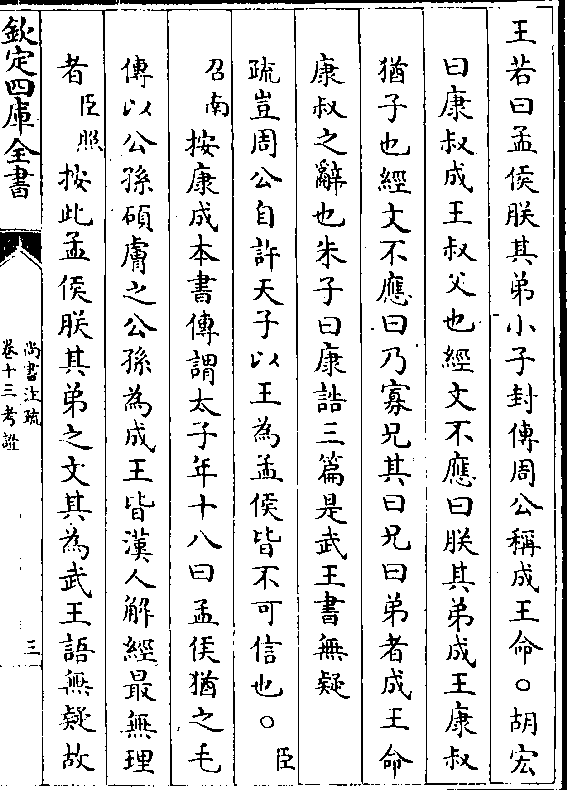 王若曰孟侯朕其弟小子封傳周公稱成王命○胡宏
曰康叔成王叔父也經文不應曰朕其弟成王康叔
猶子也經文不應曰乃寡兄其曰兄曰弟者成王命
康叔之辭也朱子曰康誥三篇是武王書無疑
疏豈周公自許天子以王為孟侯皆不可信也○臣
召南按康成本書傳謂太子年十八曰孟侯猶之毛
傳以公孫碩膚之公孫為成王皆漢人解經最無理
者臣照按此孟侯朕其弟之文其為武王語無疑故
欽定四庫全書
尚書注疏
卷十三考證
三